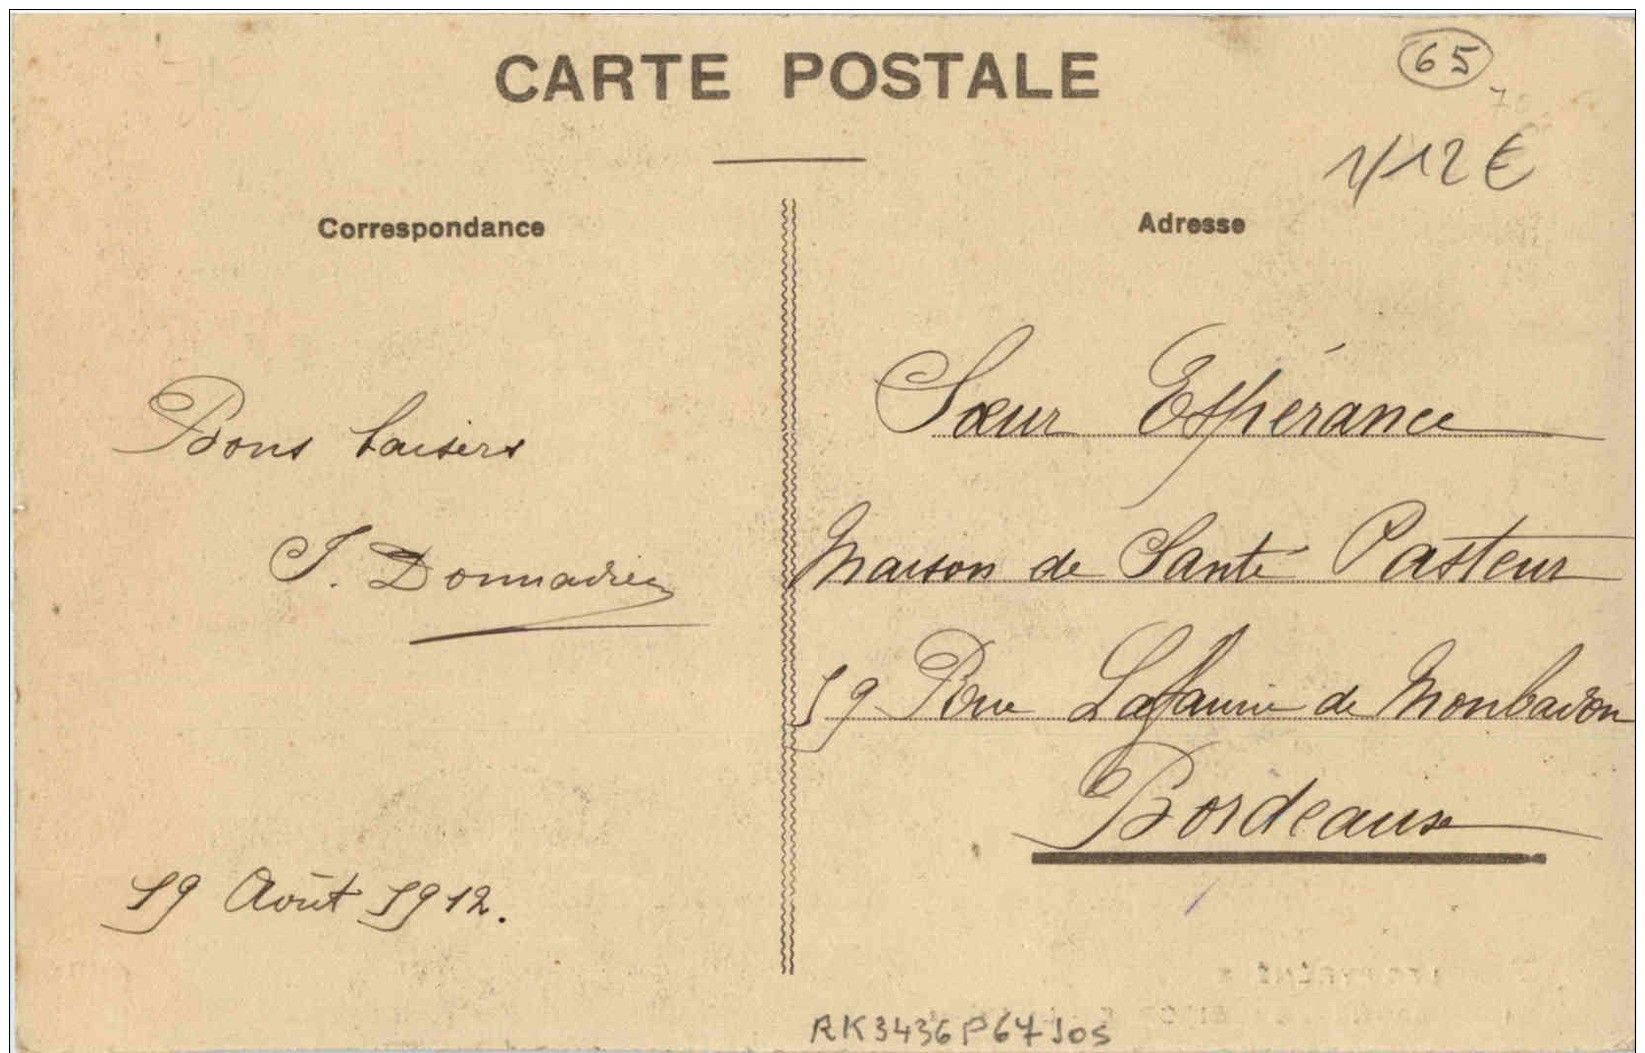 CARTE POSTALE
65
1/12 €
Correspondance
Bons baisers
J. Donnadieu
19 Août 1912.
Adresse
Sœur Espérance
Maison de Santé Pasteur
19 Rue Lafaurie de Monbadon
Bordeaux
RK3436P67JOS